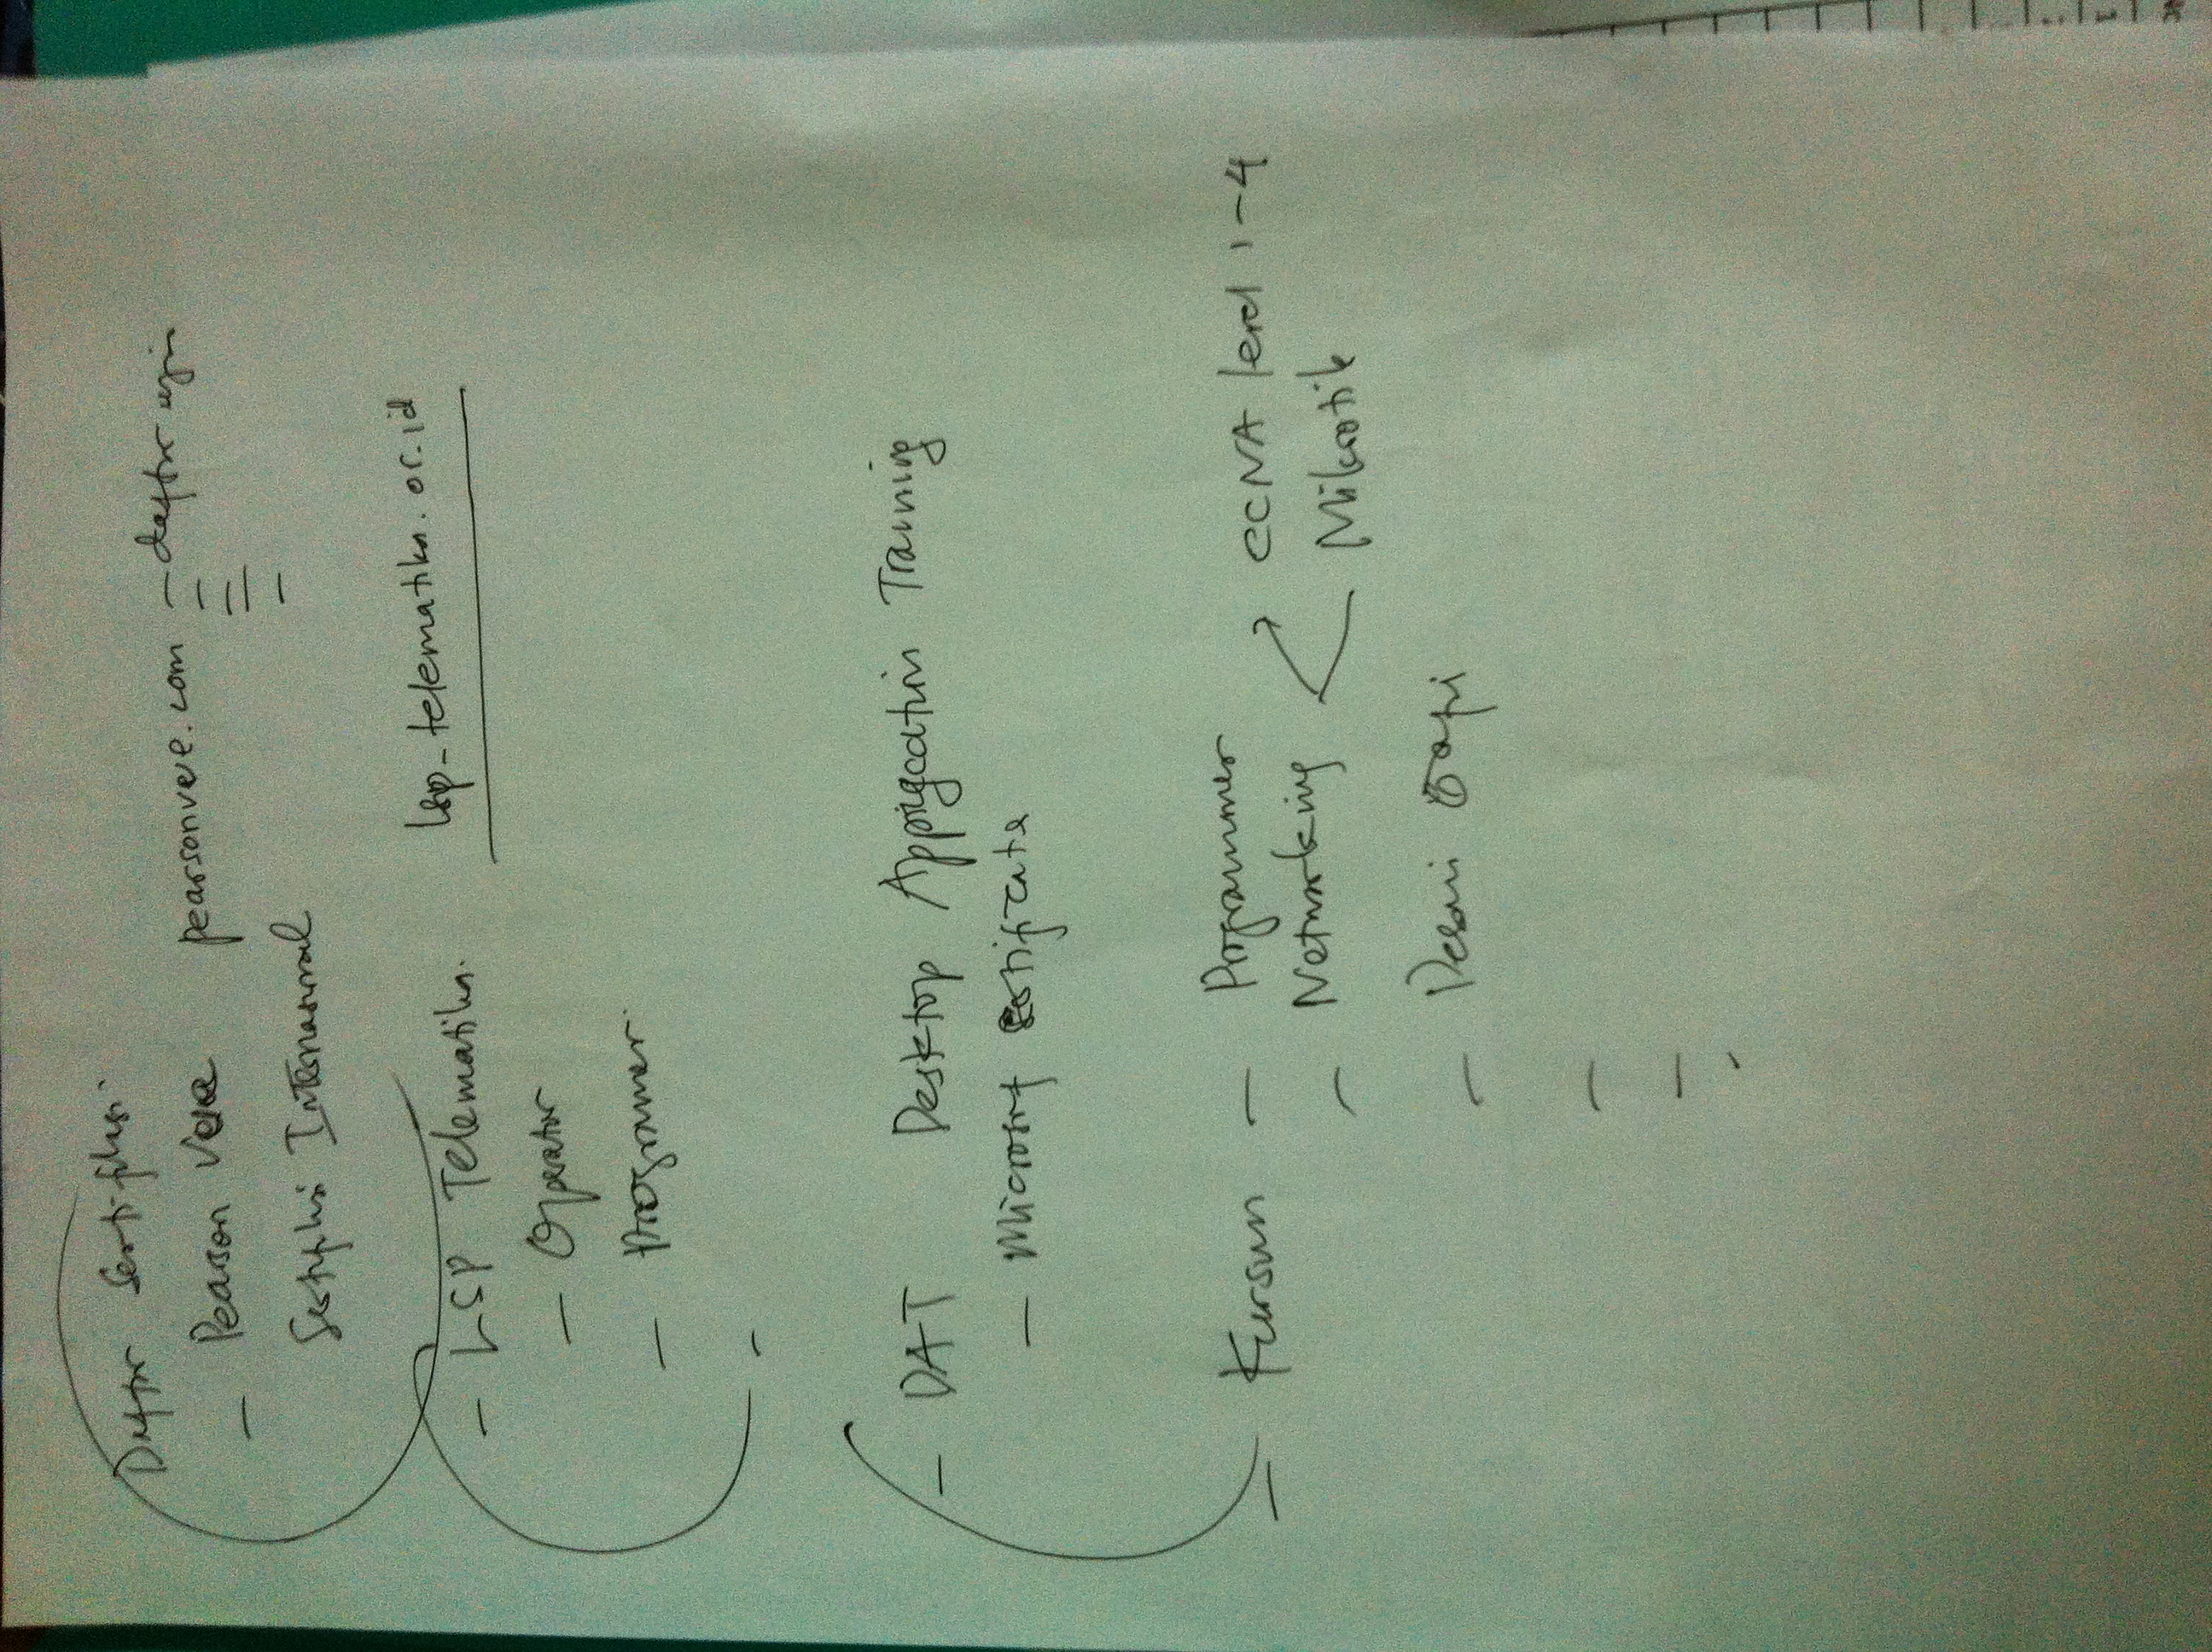 Daftar Sertifikasi
- Pearson Vue pearsonvue.com - daftar ujian
Sertifikasi Internasional
- LSP Telematika. lsp-telematika.or.id
- Operator
- Programer
- DAT Desktop Application Training
- Microsoft Certificate
- Kursus - Programmer
- Networking CCNA level 1-4
Mikrotik
- Desain Grafis